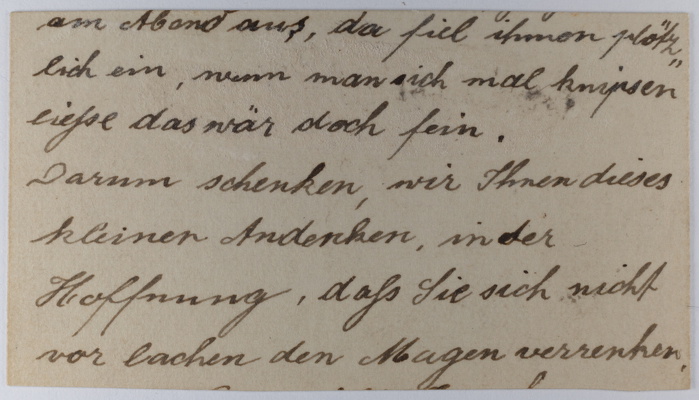 am Abend aus, da fiel ihnen plötz„
lich ein, wenn man sich mal knipsen
liesse das wär doch fein.
Darum schenken, wir Ihnen dieses
kleinen Andenken, in der
Hoffnung, dass Sie sich nicht
vor lachen den Magen verrenken,